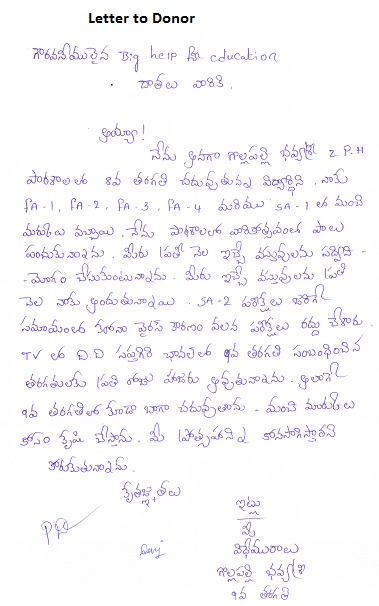 Letter to Donor
గౌరవనీయులైన Big help for education
దాతలు వారికి.
అయ్యా!
నేను అనగా గొల్లపల్లి భవ్యశ్రీ Z.P.H
పాఠశాలలో 8వ తరగతి చదువుతున్న విద్యార్థిని. నాకు
FA-1, FA-2, FA-3, FA-4 మరియు SA-1 లో మంచి
మార్కులు వచ్చాయి. నేను పాఠశాలలో వార్షికోత్సవంలో పాలు
పంచుకున్నాను. మీరు ప్రతి నెల ఇచ్చే వస్తువులను సద్విని-
-యోగం చేసుకుంటున్నాను. మీరు ఇచ్చే వస్తువులను ప్రతి
నెల నాకు అందుతున్నాయి. SA-2 పరీక్షలు జరిగే
సమయంలో కరోనా వైరస్ కారణం వలన పరీక్షలు రద్దు చేశారు.
TV లో D.D సప్తగిరి ఛానల్ లో 9వ తరగతి సంబంధించిన
తరగతులకు ప్రతి రోజు హాజరు అవుతున్నాను. అలాగే
9వ తరగతిలో కూడా బాగా చదువుతాను. మంచి మార్కులు
కోసం కృషి చేస్తాను. మీ ప్రోత్సాహాన్ని కొనసాగిస్తారని
కోరుకుతున్నాను.
కృతజ్ఞతలు
ఇట్లు
మీ
విధేయురాలు
గొల్లపల్లి భవ్యశ్రీ
9వ తరగతి